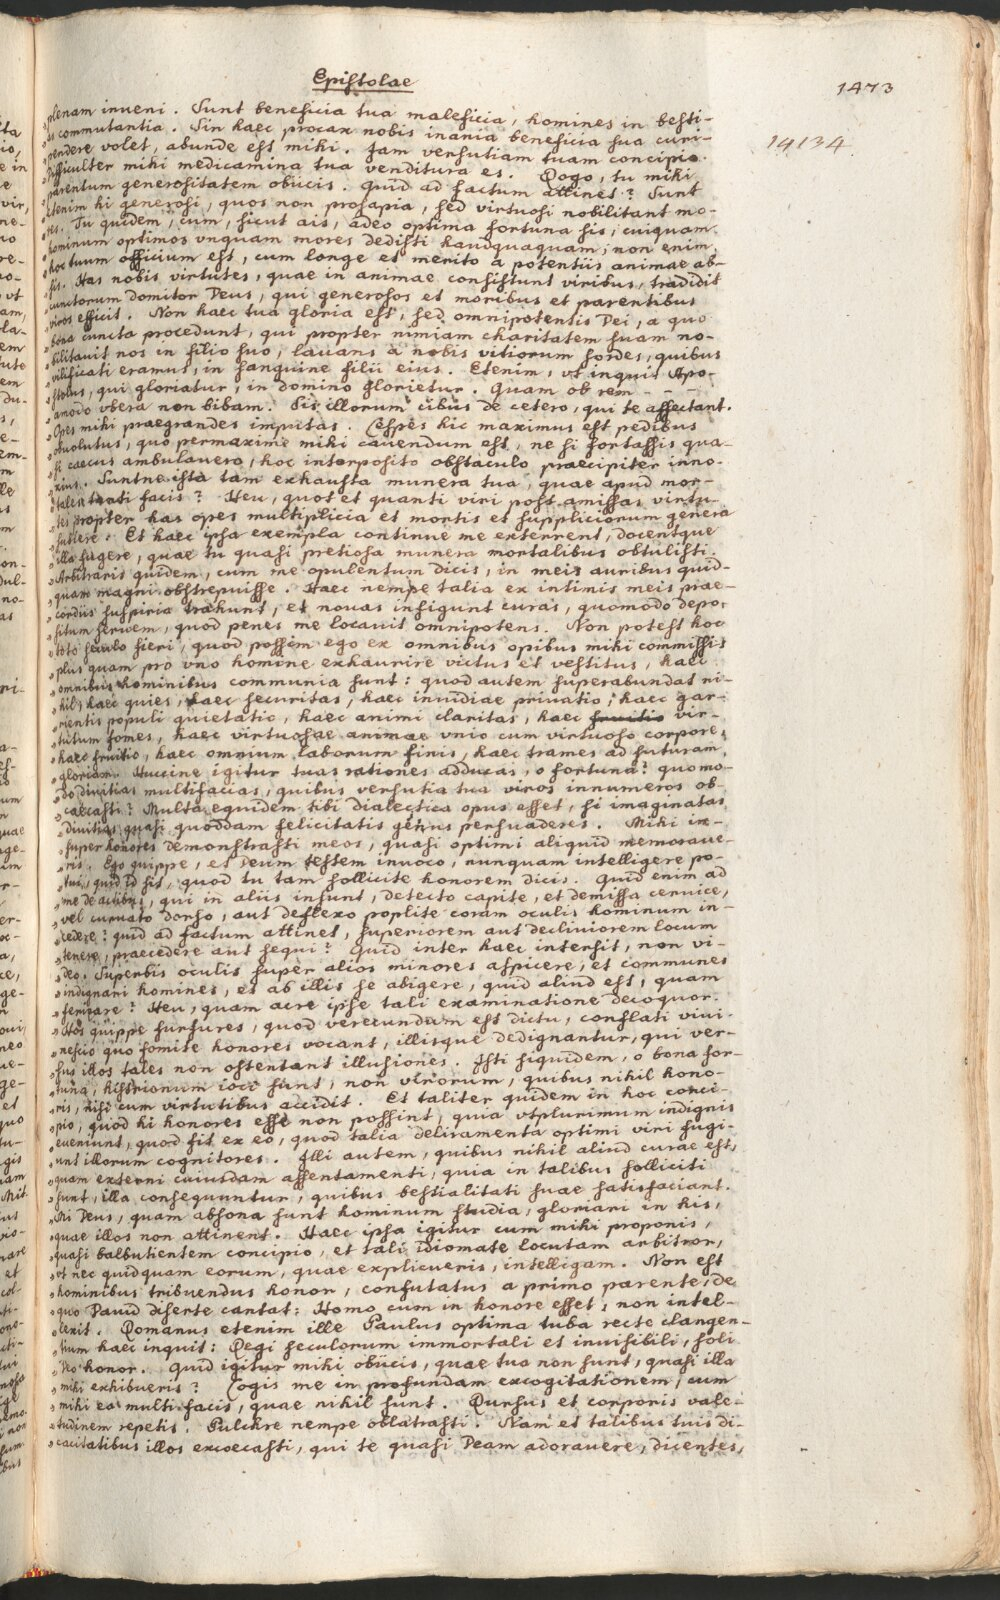 Epistolae
1473
14134
„plenam inveni. Sunt beneficia tua maleficia, homines in besti-
„as commutantia. Sin haec procax nobis inania beneficia sua curi-
„pendere volet, abunde est mihi. Iam versutiam tuam concipio.
„Difficulter mihi medicamina tua venditura es. Rogo, tu mihi
„parentum generositatem obiicis. Quid ad factum attinet? Sunt
„etenim hi generosi, quos non prosapia, sed virtuosi nobilitant mo-
„res. Tu quidem, cum, sicut ais, adeo optima fortuna sis, cuiquam
„hominum optimos vnquam mores dedisti haudquaquam; non enim
„hoc tuum officium est, cum longe es merito a potentiis animae ab-
„sis. Has nobis virtutes, quae in animae consistunt viribus, tradidit
„cunctorum domitor Deus, qui generosos et moribus et parentibus
„viros efficit. Non haec tua gloria est, sed omnipotentis Dei, a quo
„bona cuncta procedunt, qui propter nimiam charitatem suam no-
„bilitauit nos in filio suo, lauans a nobis vitiorum sordes, quibus
„vilificati eramus, in sanguine filii eius. Etenim, vt inquit Apo-
„stolus, qui gloriatur, in domino glorietur. Quam ob rem
„amodo vbera non bibam. Sis illorum cibus de cetero, qui te affectant.
„Opes mihi praegrandes imputas. Cespes hic maximus est pedibus
„obuolutus, quo permaxime mihi cauendum est, ne si fortassis qua-
„si caecus ambulauero, hoc interposito obstaculo praecipiter inno-
„xius. Suntne ista tam exhausta munera tua, quae apud mor-
„tales tanti facis? Heu, quot et quanti viri post amissas virtu-
„tes propter has opes multiplicia et mortis et suppliciorum genera
„subiere. Et haec ipsa exempla continue me exterrent, docentque
„illa fugere, quae tu quasi pretiosa munera mortalibus obtulisti.
„Arbitraris quidem, cum me opulentum dicis, in meis auribus quid-
„quam magni obstrepuisse. Haec nempe talia ex intimis meis prae-
„cordiis suspiria trahunt, et nouas infigunt curas, quomodo depo-
„situm seruem, quod penes me locauit omnipotens. Non potest hoc
„toto seculo fieri, quod possem ego ex omnibus opibus mihi commissis
„plus quam pro vno homine exhaurire victus et vestitus, haec
„omnibus hominibus communia sunt: quod autem superabundat ni-
„hil; haec quies, haec securitas, haec inuidiae priuatio, haec gar-
„rientis populi quietatio, haec animi claritas, haec fruitio vir-
„tutum fomes, haec virtuosae animae vnio cum virtuoso corpore,
„haec fruitio, haec omnium laborum finis, haec trames ad futuram
„gloriam. Huccine igitur tuas rationes adducas, o fortuna? quomo-
„do diuitias multifacias, quibus versutia tua viros innumeros ob-
„caecasti? Multa equidem tibi dialectica opus esset, si imaginatas
„diuitias quasi quoddam felicitatis genus persuaderes. Mihi in-
„super honores demonstrasti meos, quasi optimi aliquid memoraue-
„ris. Ego quippe, et Deum testem inuoco, nunquam intelligere po-
„tui, quid id sit, quod tu tam sollicite honorem dicis. Quid enim ad
„me de actibus, qui in aliis insunt, detecto capite, et demissa ceruice,
„vel curuato dorso, aut deflexo poplite coram oculis hominum in-
„cedere? quid ad factum attinet, superiorem aut decliuiorem locum
„tenere, praecedere aut sequi? Quid inter haec intersit, non vi-
„deo. Superbis oculis super alios minores aspicere, et communes
„indignari homines, et ab illis se abigere, quid aliud est, quam
„feritare? Heu, quam acre ipse tali examinatione decoquor.
„Hos quippe furfures, quod verecundum est dictu, conflati viui
„nescio quo fomite honores vocant, illisque dedignantur, qui ver-
„sus illos tales non ostentant illusiones. Isti siquidem, o bona for-
„tuna, histrionum ioci sunt, non virorum, quibus nihil hono-
„ris, nisi cum virtutibus accidit. Et taliter quidem in hoc conci-
„pio, quod hi honores esse non possint, quia vtplurimum indignis
„eueniunt, quod fit ex eo, quod talia deliramenta optimi viri fugi-
„unt illorum cognitores. Illi autem, quibus nihil aliud curae est,
„quam externi cuiusdam assentamenti, quia in talibus solliciti
„sunt, illa consequuntur, quibus bestialitati suae satisfaciant.
„Mi Deus, quam absona sunt hominum studia, gloriari in his,
„quae illos non attinent. Haec ipsa igitur cum mihi proponis,
„quasi balbutientem concipio, et tali idiomate locutam arbitror,
„vt nec quidquam eorum, quae explicueris, intelligam. Non est
„hominibus tribuendus honor, confutatus a primo parente, de
„quo Dauid diserte cantat: Homo cum in honore esset, non intel-
„lexit. Romanus etenim ille Paulus optima tuba recte clangen-
„tium haec inquit: Regi seculorum immortali et inuisibili, soli
„Deo honor. Quid igitur mihi obiicis, quae tua non sunt, quasi illa
„mihi exhibueris? Cogis me in profundam excogitationem, cum
„mihi ea multi facis, quae nihil sunt. Rursus et corporis vale-
„tudinem repetis. Pulchre nempe oblatrasti. Nam et talibus tuis di-
„cacitatibus illos excoecasti, qui te quasi Deam adorauere, dicentes,